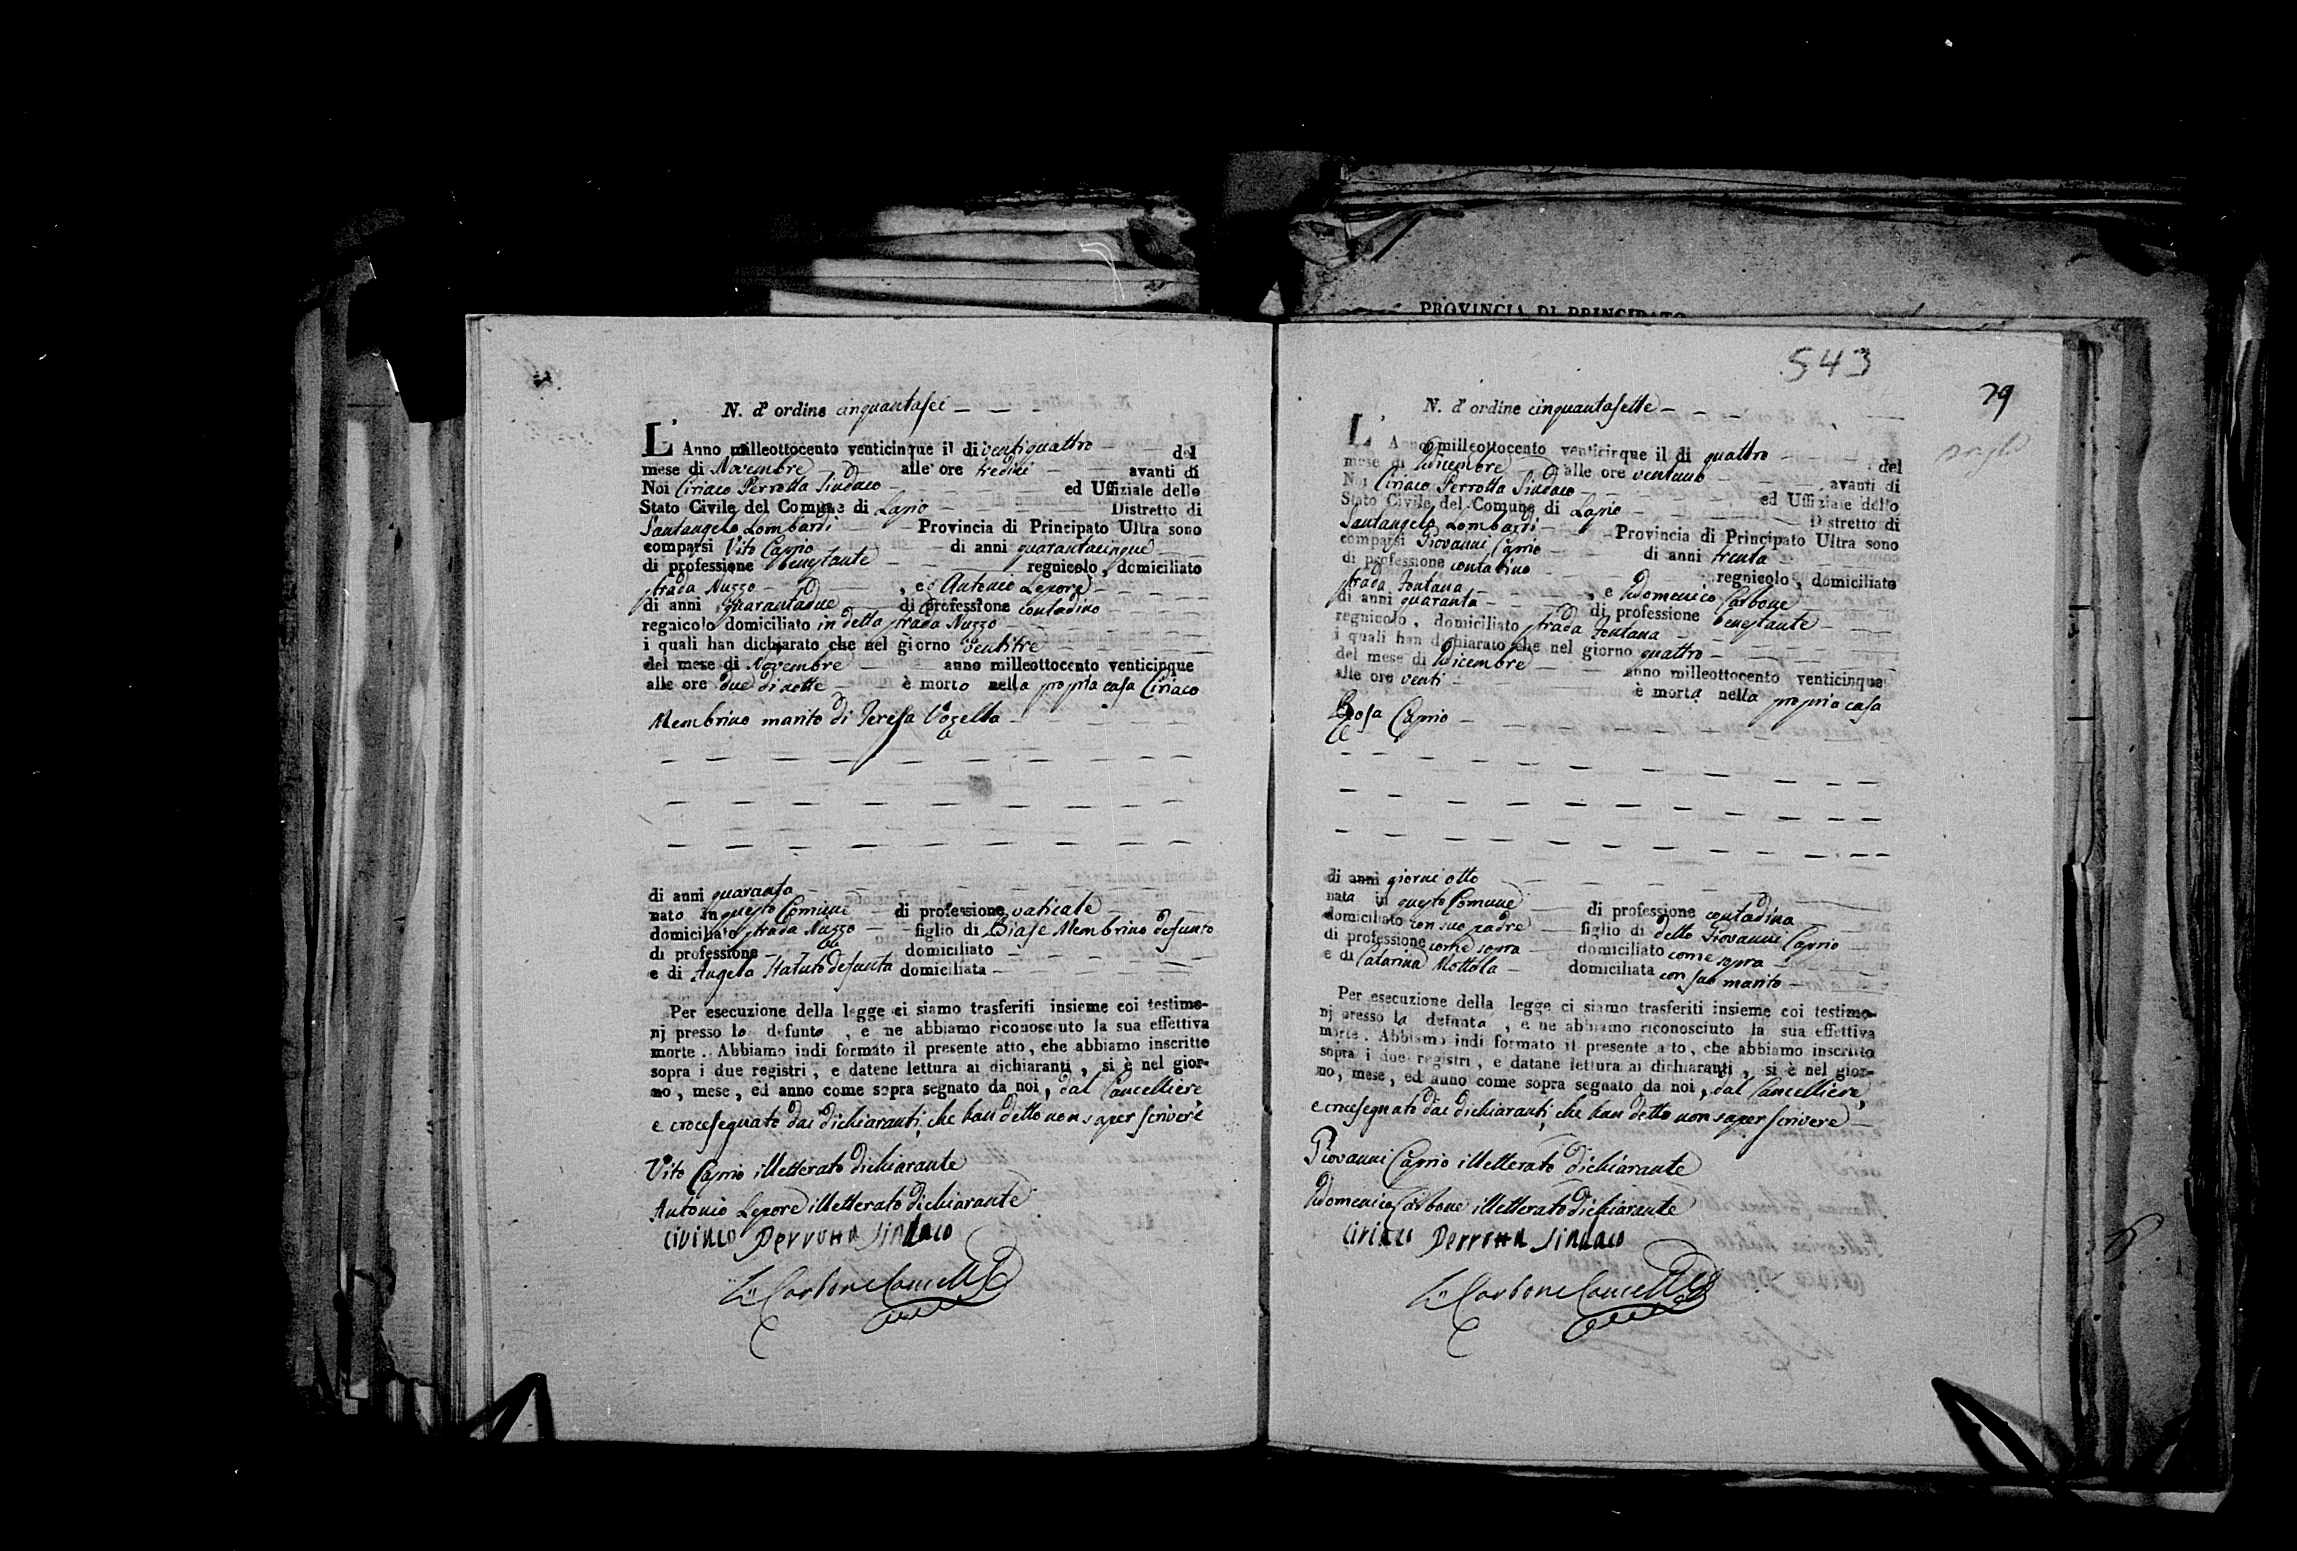 PROVINCIA DI PRINCIPATO
N. d' ordine cinquantasei
L' Anno milleottocento venticinque il di ventiquattro del
mese di Novembre alle ore tredici avanti di
Noi Ciriaco Perrotta Sindaco ed Uffiziale dello
Stato Civile del Comune di Lapio Distretto di
Santangelo Lombardi Provincia di Principato Ultra sono
comparsi Vito Caprio di anni quarantacinque
di professione benestante regnicolo, domiciliato
strada Nuzzo , e Antonio Lepore
di anni quarantadue di professione contadino
regnicolo domiciliato in detta strada Nuzzo
i quali han dichiarato che nel giorno ventitre
del mese di Novembre anno milleottocento venticinque
alle ore due di notte è morto nella propria casa Ciriaco
Membrino marito di Teresa Vozella
di anni quaranta
nato in questo Comune di professione vaticale
domiciliato strada Nuzzo figlio di Biase Membrino defunto
di professione domiciliato
e di Angela Statuto defunta domiciliata
Per esecuzione della legge ci siamo trasferiti insieme coi testimo-
nj presso lo defunto , e ne abbiamo riconosciuto la sua effettiva
morte. Abbiamo indi formato il presente atto, che abbiamo inscritto
sopra i due registri, e datene lettura ai dichiaranti, si è nel gior-
no, mese, ed anno come sopra segnato da noi, dal Cancelliere
e crocesegnato dai dichiaranti, che han detto non saper scrivere
Vito Caprio illetterato dichiarante
Antonio Lepore illetterato dichiarante
Ciriaco Perrotta Sindaco
Carbone Cancelle
543
79
N. d' ordine cinquantasette
L' Anno milleottocento venticinque il di quattro del
mese di Dicembre alle ore ventuno avanti di
Noi Ciriaco Perrotta Sindaco ed Uffiziale dello
Stato Civile del Comune di Lapio Distretto di
Santangelo Lombardi Provincia di Principato Ultra sono
comparsi Giovanni Caprio di anni trenta
di professione contadino regnicolo, domiciliato
strada Fontana , e Domenico Carbone
di anni quaranta di professione benestante
regnicolo, domiciliato strada Fontana
i quali han dichiarato che nel giorno quattro
del mese di Dicembre anno milleottocento venticinque
alle ore venti è morta nella propria casa
Rosa Caprio
di anni giorni otto
nata in questo Comune di professione contadina
domiciliato con suo padre figlio di detto Giovanni Caprio
di professione come sopra domiciliato come sopra
e di Catarina Mottola domiciliata con suo marito
Per esecuzione della legge ci siamo trasferiti insieme coi testimo-
nj presso la defunta , e ne abbiamo riconosciuto la sua effettiva
morte. Abbiamo indi formato il presente atto, che abbiamo inscritto
sopra i due registri, e datane lettura ai dichiaranti, si è nel gior-
no, mese, ed anno come sopra segnato da noi, dal Cancelliere,
e crocesegnato dai dichiaranti, che han detto non saper scrivere
Giovanni Caprio illetterato dichiarante
Domenico Carbone illetterato dichiarante
Ciriaco Perrotta Sindaco
Carbone Cancelle